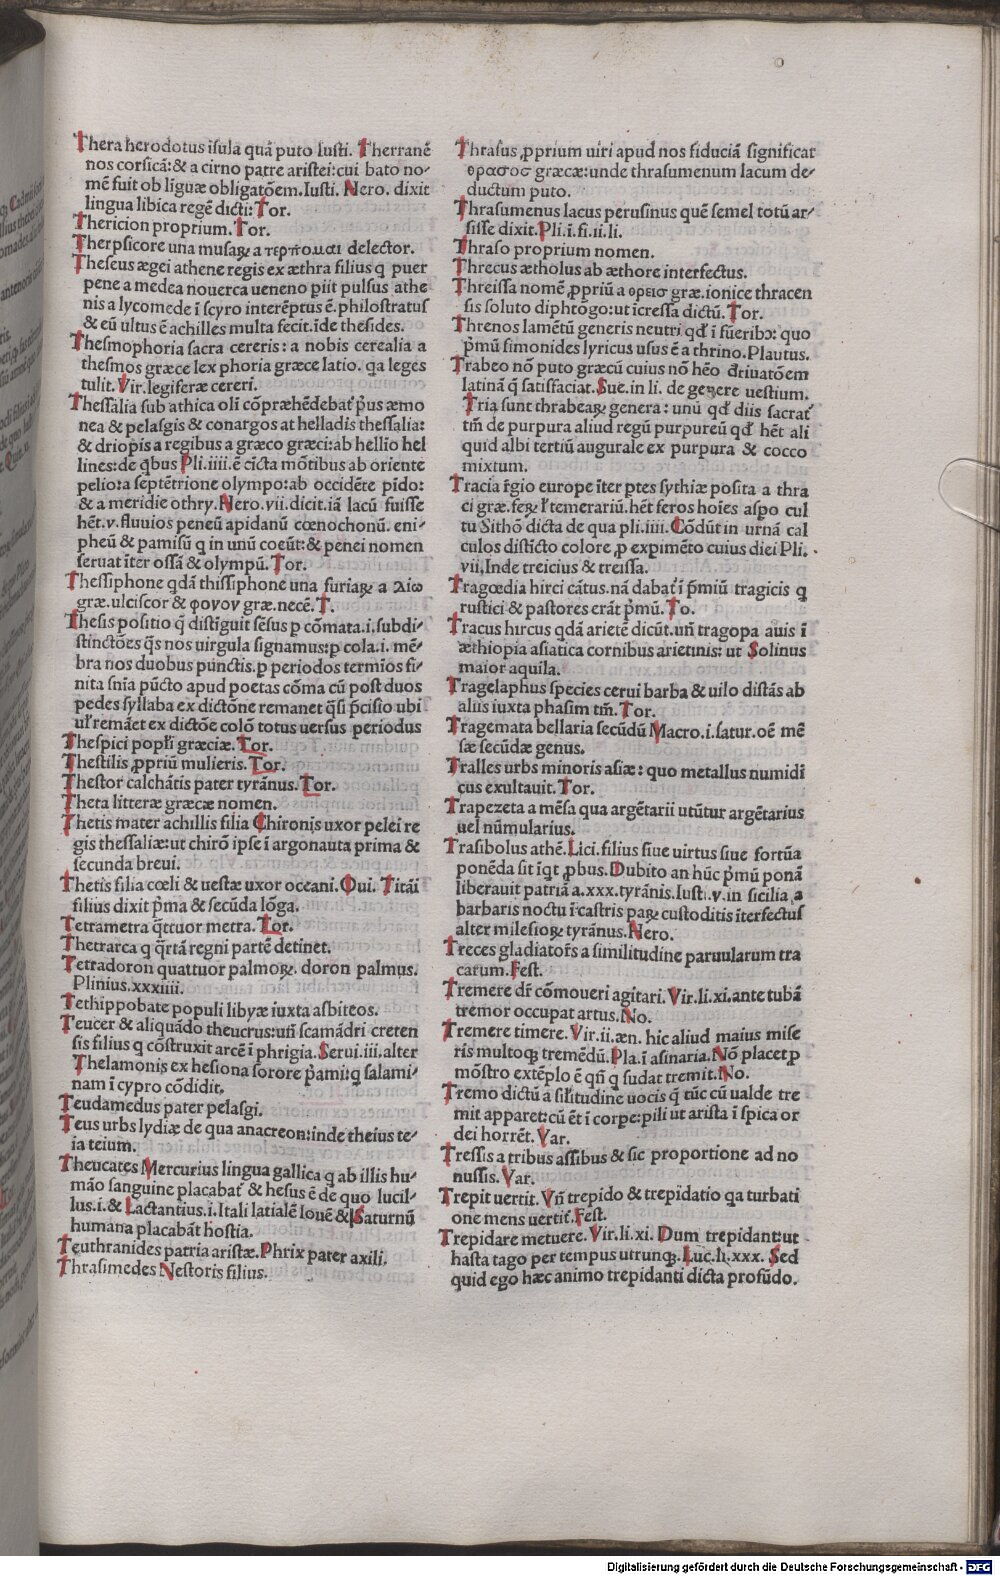 Thera herodotus ĩsula quã puto Iusti. Therranẽ
nos corsicã: & a cirno patre aristei: cui bato no-
mẽ fuit ob liguæ obligatõem. Iusti. Nero. dixit
lingua libica regẽ dicti: Tor.
Thericion proprium. Tor.
Therpsicore una musaꝝ a τερπομαι delector.
Theseus ægei athene regis ex æthra filius q puer
pene a medea nouerca ueneno piit pulsus athe
nis a lycomede ĩ scyro interẽptus ẽ. philostratus
& eũ ultus ẽ achilles multa fecit. ĩde thesides.
Thesmophoria sacra cereris: a nobis cerealia a
thesmos græce lex phoria græce latio. qa leges
tulit. Vir. legiferæ cereri.
Thessalia sub athica oli cõpræhẽdebat̃ p̃us æmo
nea & pelasgis & conargos at helladis thessalia:
& driopis a regibus a græco græci: ab hellio hel
lines: de q̃bus Pli. iiii. ẽ cĩcta mõtibus ab oriente
pelio: a septẽtrione olympo: ab occidẽte pĩdo:
& a meridie othry. Nero. vii. dicit. iã lacũ fuisse
hẽt. v. fluuios peneũ apidanũ cœnochonũ. eni-
pheũ & pamisũ q in unũ coeũt: & penei nomen
seruat ĩter ossã & olympũ. Tor.
Thessiphone qdã thissiphone una furiaꝝ a λιω
græ. ulciscor & φονον græ. necẽ. T.
Thesis positio q̃ distiguit sẽsus p cõmata. i. subdi-
stinctões q̃s nos uirgula signamus: p cola. i. mẽ-
bra nos duobus punctis. p periodos termĩos fi-
nita snĩa pũcto apud poetas cõma cũ post duos
pedes syllaba ex dictõne remanet q̃si p̃cisio ubi
ul̃ remãet ex dictõe colõ totus uersus periodus
Thespici popl̃i græciæ. Tor.
Thestilis ꝓpriũ mulieris. Tor.
Thestor calchãtis pater tyrãnus. Tor.
Theta litteræ græcæ nomen.
Thetis mater achillis filia Chironis uxor pelei re
gis thessaliæ: ut chirõ ipse ĩ argonauta prima &
secunda breui.
Thetis filia cœli & uestæ uxor oceani. Oui. Titãi
filius dixit p̃ma & secũda lõga.
Tetrametra q̃ttuor metra. Tor.
Thetrarca q q̃rtã regni partẽ detinet.
Tetradoron quattuor palmoꝝ. doron palmus.
Plinius. xxxiiii.
Tethippobate populi libyæ iuxta asbiteos.
Teucer & aliquãdo theucrus: uñ scamãdri creten
sis filius q cõstruxit arcẽ ĩ phrigia. Serui. iii. alter
Thelamonis ex hesiona sorore p̃ami: q salami-
nam ĩ cypro cõdidit.
Teudamedus pater pelasgi.
Teus urbs lydiæ de qua anacreon: inde theius te-
ia teium.
Theucates Mercurius lingua gallica q ab illis hu-
mão sanguine placabat̃ & hesus ẽ de quo lucil-
lus. i. & Lactantius. i. Itali latialẽ Iouẽ & Saturnũ
humana placabãt hostia.
Teuthranides patria aristæ. Phrix pater axili.
Thrasimedes Nestoris filius.
Thrasus ꝓprium uiri apud nos fiduciã significat
θρασοσ græcæ: unde thrasumenum lacum de-
ductum puto.
Thrasumenus lacus perusinus quẽ semel totũ ar-
sisse dixit. Pli. i. fi. ii. li.
Thraso proprium nomen.
Threcus ætholus ab æthore interfectus.
Threissa nomẽ ꝓpriũ a θρεισ græ. ionice thracen
sis soluto diphtõgo: ut ĩcressa dictũ. Tor.
Threnos lamẽtũ generis neutri qđ ĩ fũeribꝫ: quo
p̃mũ simonides lyricus usus ẽ a thrino. Plautus.
Trabeo nõ puto græcũ cuius nõ hẽo đriuatõem
latinã q̃ satisfaciat. Sue. in li. de genere uestium.
Tria sunt thrabeaꝝ genera: unũ qđ diis sacrat̃
tm̃ de purpura aliud regũ purpureũ qđ hẽt ali
quid albi tertiũ augurale ex purpura & cocco
mixtum.
Tracia r̃gio europe ĩter ptes sythiæ posita a thra
ci græ. feꝝ l̃ temerariũ. hẽt feros hoĩes aspo cul
tu Sithõ dicta de qua pli. iiii. Cõdũt in urnã cal
culos distĩcto colore ꝓ expimẽto cuius diei Pli.
vii, Inde treicius & treissa.
Tragœdia hirci cãtus. nã dabat̃ ĩ p̃miũ tragicis q
rustici & pastores erãt p̃mũ. To.
Tracus hircus qdã arietẽ dicũt. uñ tragopa auis ĩ
æthiopia asiatica cornibus arietinis: ut Solinus
maior aquila.
Tragelaphus species cerui barba & uilo distãs ab
aliis iuxta phasim tm̃. Tor.
Tragemata bellaria secũdũ Macro. i. satur. oẽ mẽ
sæ secũdæ genus.
Tralles urbs minoris asiæ: quo metallus numidĩ
cus exultauit. Tor.
Trapezeta a mẽsa qua argẽtarii utũtur argẽtarius
uel nũmularius.
Trasibolus athẽ. Lici. filius siue uirtus siue fortũa
ponẽda sit iq̃t ꝓbus. Dubito an hũc p̃mũ ponã
liberauit patriã a. xxx. tyrãnis. Iusti. v. in sicilia a
barbaris noctu ĩ castris paꝝ custoditis ĩterfectus
alter milesioꝝ tyrãnus. Nero.
Treces gladiator̃s a similitudine paruularum tra
carum. Fest.
Tremere dr̃ cõmoueri agitari. Vir. li. xi. ante tubã
tremor occupat artus. No.
Tremere timere. Vir. ii. æn. hic aliud maius mise
ris multoqꝫ tremẽdũ. Pla. ĩ asinaria. Nõ placet ꝓ
mõstro extẽplo ẽ qñ q sudat tremit. No.
Tremo dictũ a sil̃itudine uocis q̃ tũc cũ ualde tre
mit apparet: cũ ẽt ĩ corpe: pili ut arista ĩ spica or
dei horrẽt. Var.
Tressis a tribus assibus & sic proportione ad no
nussis. Var.
Trepit uertit. Vñ trepido & trepidatio qa turbati
one mens uertit̃. Fest.
Trepidare metuere. Vir. li. xi. Dum trepidant: ut
hasta tago per tempus utrunqꝫ. Luc. li. xxx. Sed
quid ego hæc animo trepidanti dicta profũdo.
Digitalisierung gefördert durch die Deutsche Forschungsgemeinschaft - DFG